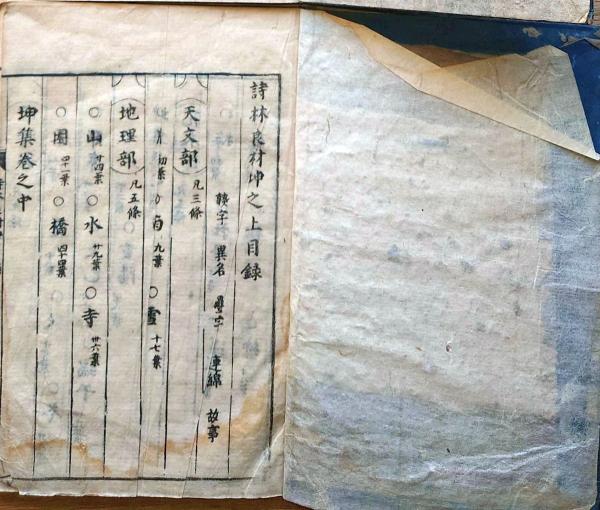 詩林良材坤之上目録
熟字 異名 疊字 連綿 故事
天文部 凡三條
月 初葉 ○雨 九葉 ○雪 十七葉
地理部 凡五條
○山 廿四葉 ○水 廿九葉 ○寺 卅六葉
○園 四十一葉 ○橋 四十四葉
坤集卷之中